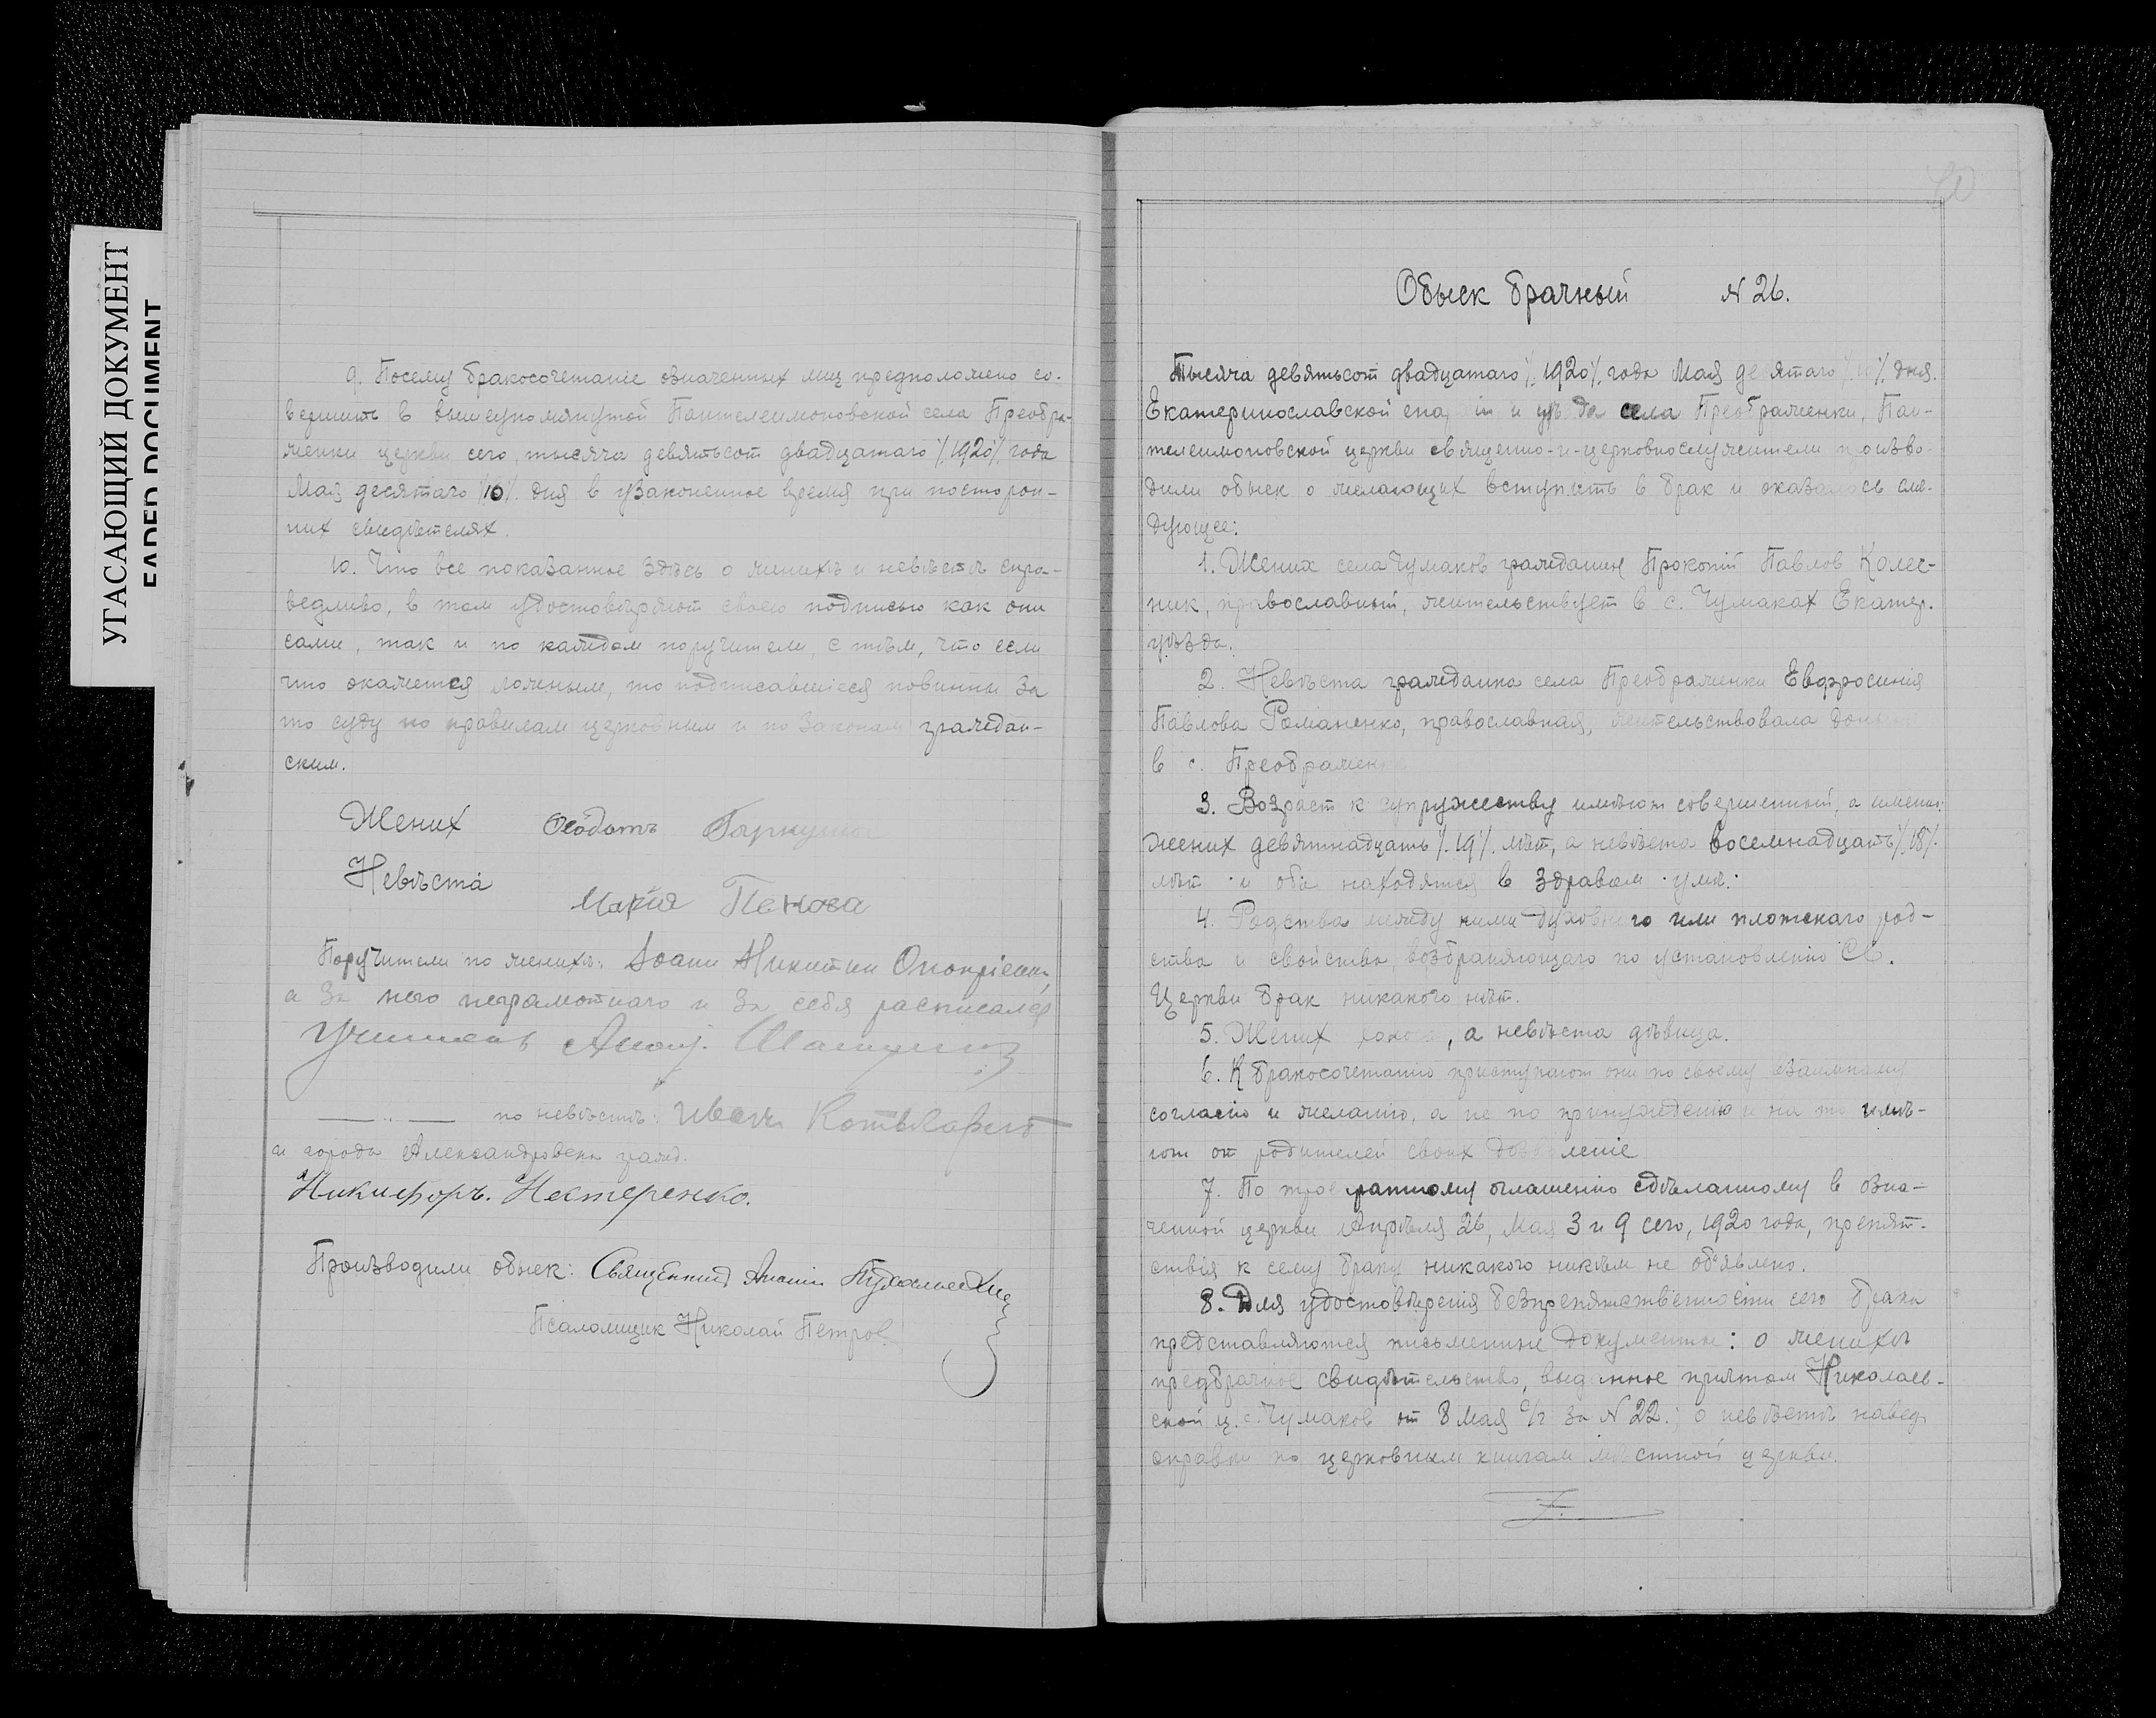 УГАСАЮЩИЙ ДОКУМЕНТ
FADED DOCUMENT
9. Посему бракосочетаніе означенных лиц предположено со-
вершить в вышеупомянутой Пантелеимоновской села Преобра-
женки церкви сего, тысяча девятьсот двадцатаго /1920/ года
Мая десятаго /10/ дня в узаконенное время при посторон-
них свидѣтелях.
10. Что все показанное здѣсь о женихѣ и невѣстѣ спра-
ведливо, в том удостовѣряют своею подписью как они
сами, так и по каждом поручители, с тѣм, что если
что окажется ложным, то подписавшіеся повинны за
то суду по правилам церковным и по законам граждан-
ским.
Жених Ѳеодотъ
Невѣста
Марія
Поручители по женихѣ: Іоанн Никитин Оноприенко,
а за него неграмотнаго и за себя расписался
учитель
по невѣстѣ: Иван
и города Александровска гражд.
Никифоръ. Нестеренко.
Производили обыск: Священник
Псаломщик Николай Петров
Обыск брачный N 26.
Тысяча девятьсот двадцатаго /1920/ года Мая десятаго /10/ дня.
Екатеринославской епархіи и уѣзда села Преображенки, Пан-
телеимоновской церкви священно-и-церковнослужители произво-
дили обыск о желающих вступить в брак и оказалось слѣ-
дующее:
1. Жених села Чумаков гражданин Прокопій Павлов Колес-
ник, православный, жительствует в с. Чумаках Екатер.
уѣзда.
2. Невѣста гражданка села Преображенки Евфросинія
Павлова Романенко, православная, жительствовала
в с. Преображенкѣ
3. Возраст к супружеству имѣют совершенный, а именно:
жених девятнадцать /19/ лѣт, а невѣста восемнадцать /18/
лѣт и оба находятся в здравом умѣ.
4. Родства между ними духовнаго или плотскаго род-
ства и свойства, возбраняющаго по установленію Св.
Церкви брак никакого нѣт.
5. Жених холост, а невѣста дѣвица.
6. К бракосочетанію приступают они по своему взаимному
согласію и желанію, а не по принужденію и на то имѣ-
ют от родителей своих дозволеніе
7. По троекратному оглашению сдѣланному в озна-
ченной церкви Апрѣля 26, Мая 3 и 9 сего, 1920 года, препят-
ствія к сему браку никакого никѣм не объявлено.
8. Для удостовѣренія безпрепятственности сего брака
представляются письменные документы: о женихѣ
предбрачное свидѣтельство, выданное причтом Николаев-
ской ц. с. Чумаков от 8 Мая с/г за N 22.; о невѣстѣ навед.
справки по церковным книгам мѣстной церкви.